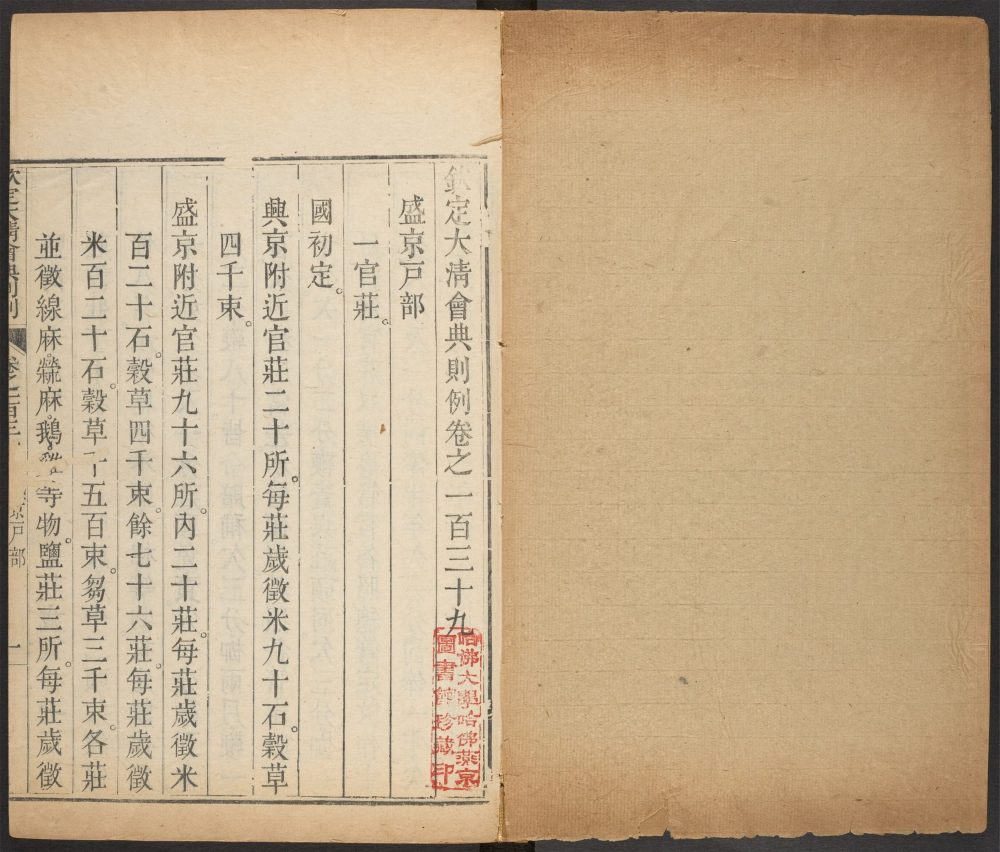 欽定大清會典則例卷之一百三十九
盛京戸部
一官莊。
國初定。
興京附近官莊二十所。每莊歲徵米九十石。穀草
四千束。
盛京附近官莊九十六所。內二十莊。每莊歲徵米
百二十石。穀草四千束。餘七十六莊。每莊歲徵
米百二十石。穀草 五百束。芻草三千束。各莊
並徵線麻。檾麻。鵝 等物。鹽莊三所。每莊歲徵
欽定大清會典則例
卷之一百三
京戸部
一
哈佛大學哈佛燕京
圖書館珍藏印